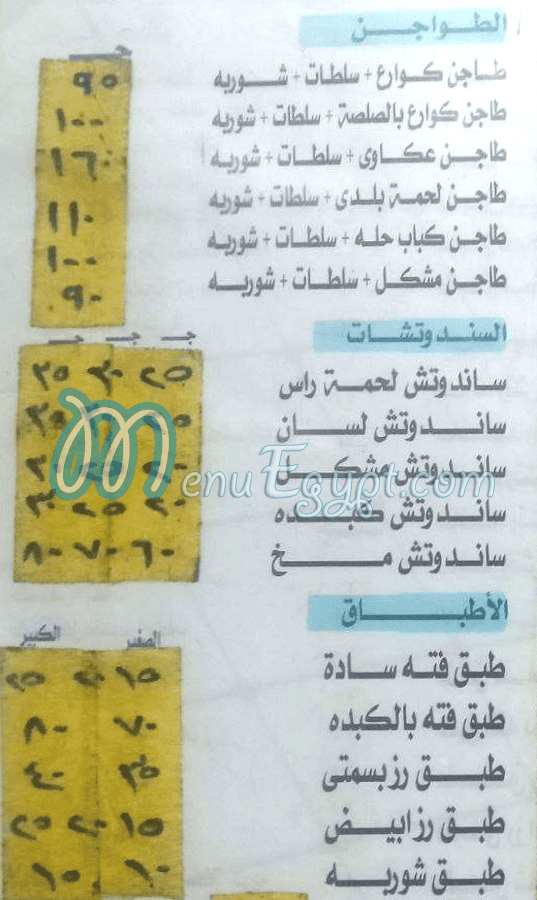 الطواجن
جـ
طاجن كوارع + سلطات + شوربه ٩٥
طاجن كوارع بالصلصة + سلطات + شوربه ١٠٠
طاجن عكاوى + سلطات + شوربه ١٦٠
طاجن لحمة بلدى + سلطات + شوربه ١١٠
طاجن كباب حله + سلطات + شوربه ١٠٠
طاجن مشكل + سلطات + شوربه ٩٠
السندوتشات
جـ جـ جـ
ساندوتش لحمة راس ٢٥ ٣٠ ٣٥
ساندوتش لسان ٣٥
ساندوتش مشكل
ساندوتش كبده ٢٠ ٢٥ ٣٠
ساندوتش مخ ٦٠ ٧٠ ٨٠
MenuEgypt.com
الأطباق
الصغير الكبير
طبق فته سادة ١٥ ٢٠ ٢٥
طبق فته بالكبده ٧٠ ٨٠
طبق رز بسمتى ٣٥ ٤٠
طبق رز ابيض ١٥ ٢٠ ٢٥
طبق شوربه ١٠ ١٥